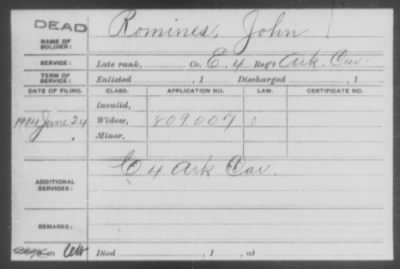 DEAD
NAME OF SOLDIER: Romines, John
SERVICE: Late rank, Co. E. 4 Reg't Ark. Cav.
TERM OF SERVICE: Enlisted , 1 Discharged , 1
DATE OF FILING. CLASS. APPLICATION NO. LAW. CERTIFICATE NO.
Invalid,
1904 June 24 Widow, 809007
Minor,
ADDITIONAL SERVICES: E 4 Ark Cav.
REMARKS:
Died , 1 , at